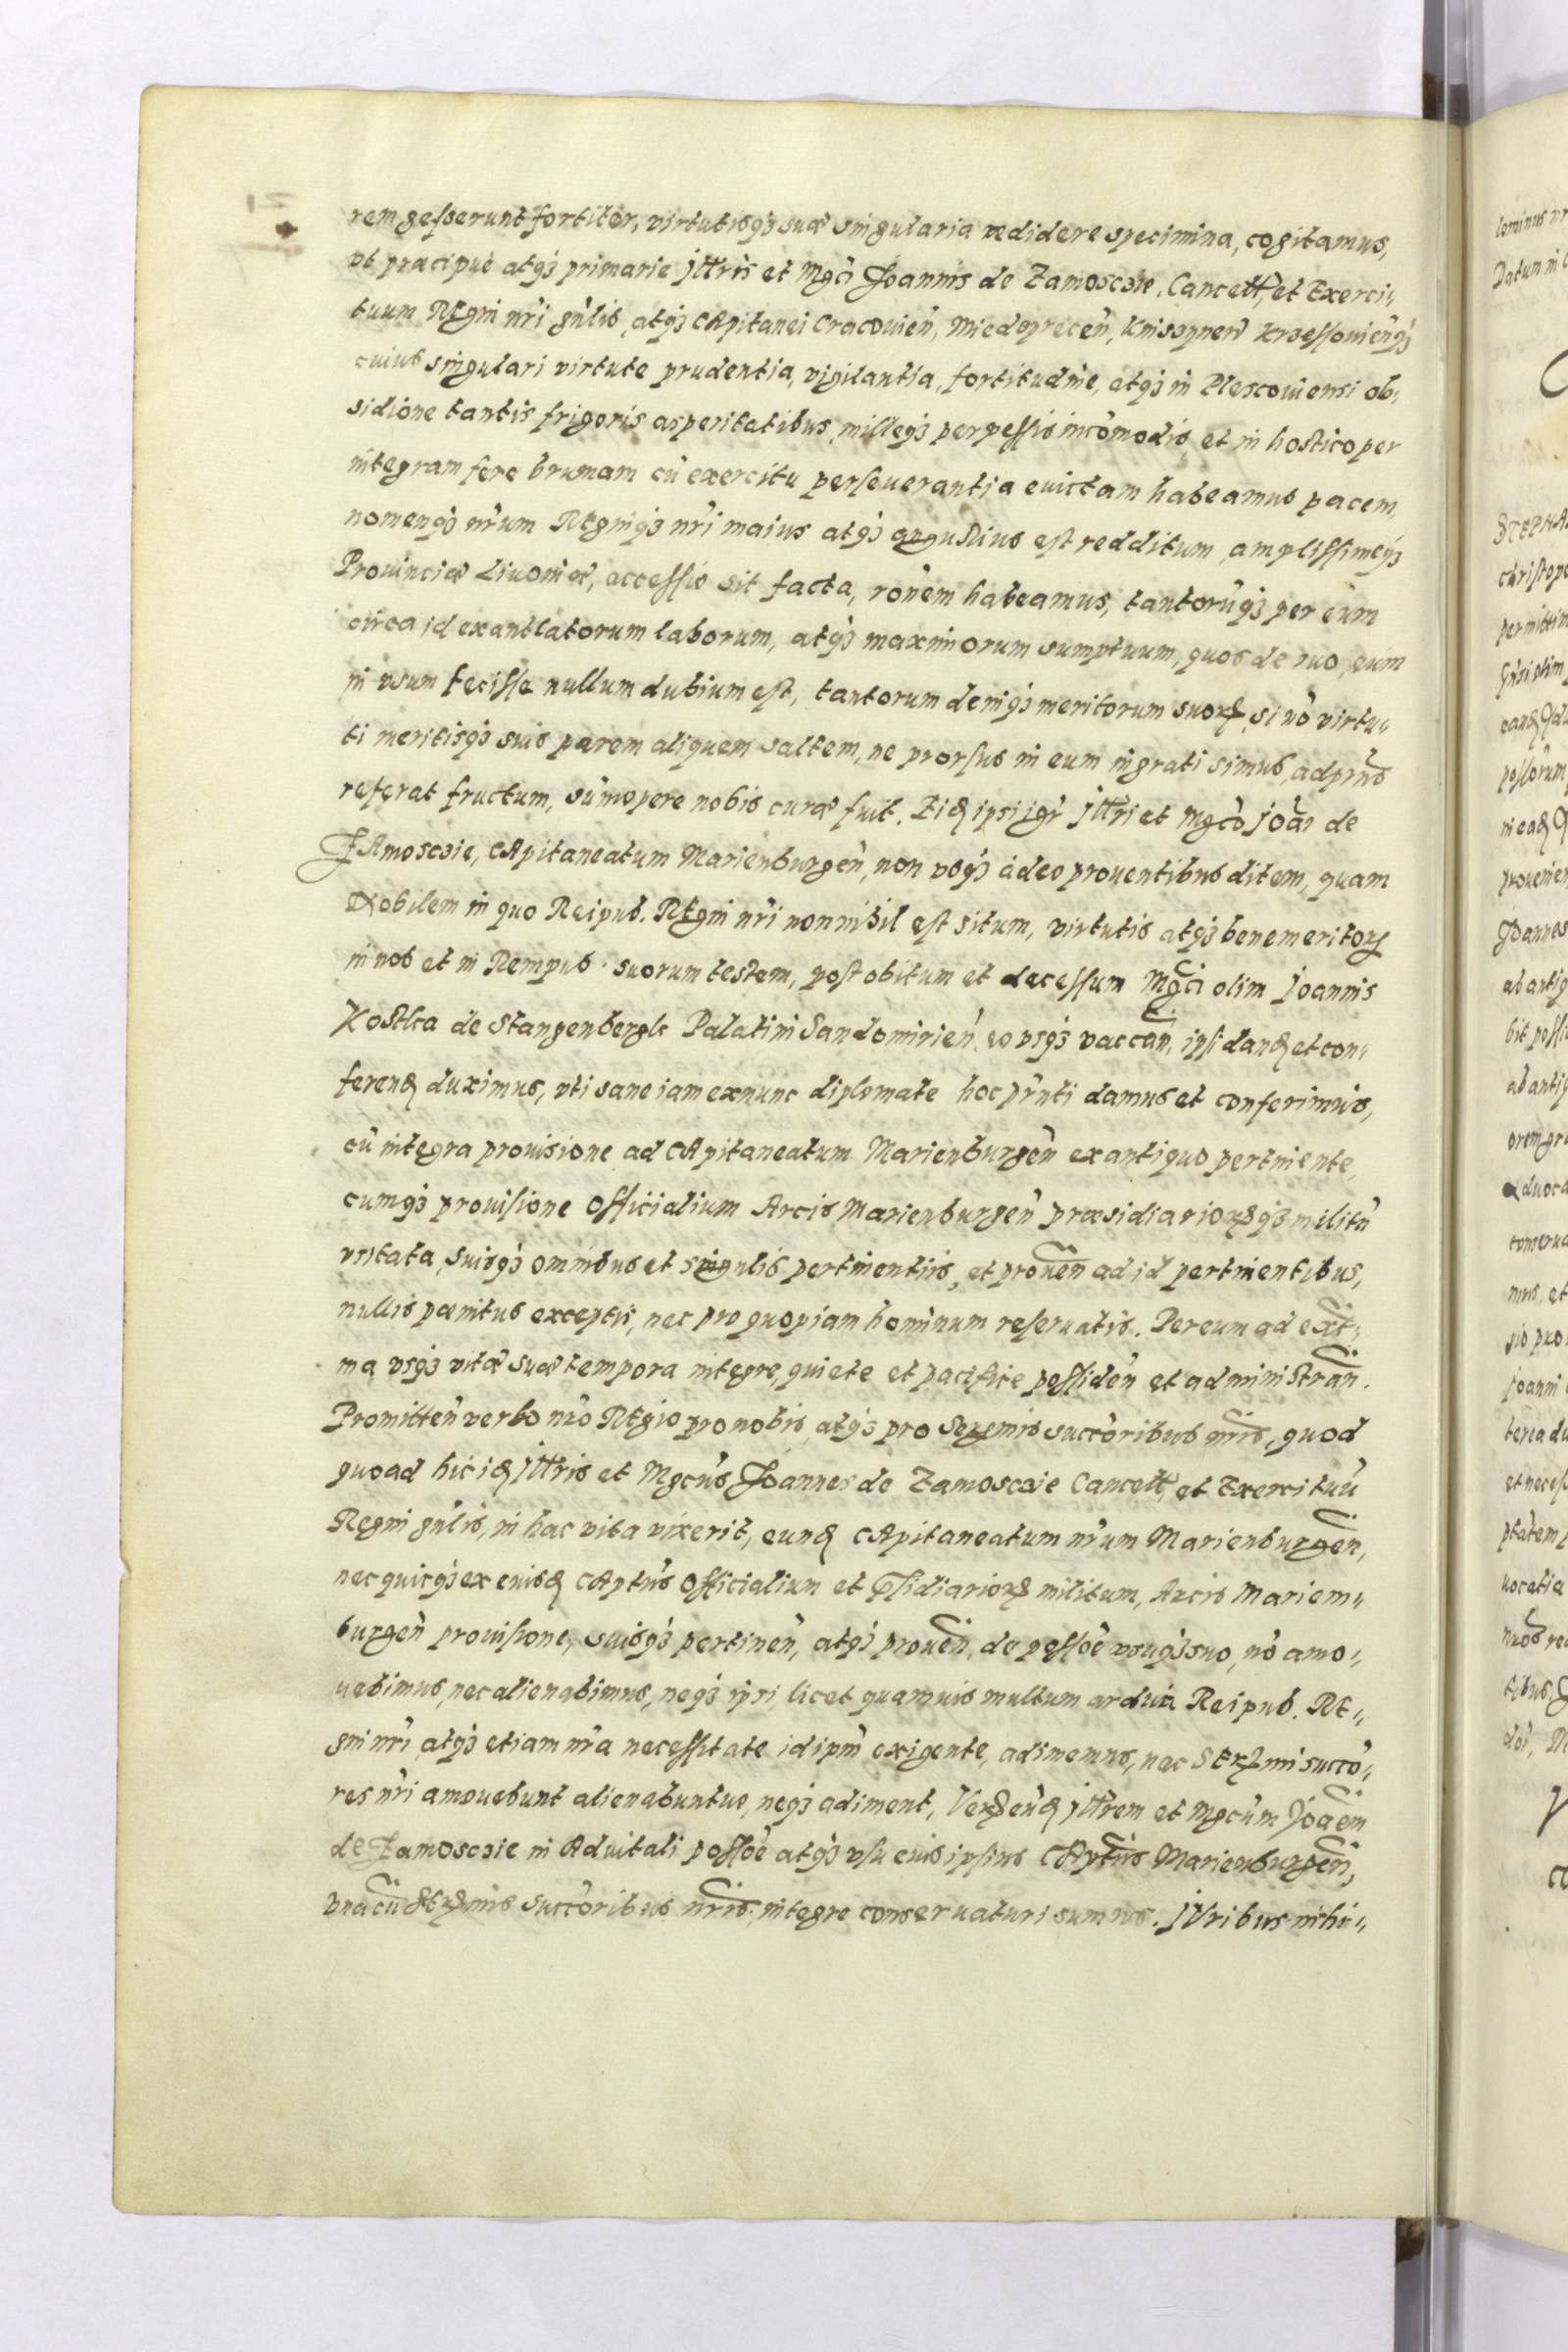 rem gesserunt fortiter, virtutisq3 suæ singularia dedidere specimina, cogitamus,
vt præcipuè atq3 primarie Jllris et Mgci Joannis de Zamosczie, Cancell, et Exerci„
tuum Regni nri gnlis, atq3 Capitanei Cracovien, Miedzyrecen, Kniszynen Krzessovienq3
cuius singulari virtute prudentia, vigilantia, fortitudine, atq3 in Plescoviensi ob„
sidione tantis frigoris asperitatibus milleq3 perpessis incōmodis, et in hostico per
integram fere brumam cū exercitu perseuerantia euictam habeamus pacem,
nomenq3 nrum Regniq3 nri maius atq3 angustius est redditum, amplissimeq3
Prouinciæ Livoniæ, accessio sit facta, ronem habeamus, tantorūq3 per eum
circa id exantlatorum laborum, atq3 maximorum sumptuum, quos de suo, eum
in vsum fecisse nullum dubium est, tantorum deniq3 meritorum suorꝝ, si nō virtu„
ti meritisq3 suis parem aliquem saltem, ne prorsus in eum ingrati simus, ad prns
referat fructum, sūmopere nobis curæ fuit. Eidꝫ ipsi igr Jllri et Mgco Joāi de
Zamosczie, Capitaneatum Marienburgen, non vsq3 adeo prouentibus ditem, quam
Nobilem in quo Reipub. Regni nri nonnihil est situm, virtutis atq3 benemeritorꝝ
in nos et in Rempub. suorum testem, post obitum et decessum Mgci olim Joannis
Kostka de Stangenbergk Palatini Sandomirien, eo vsq3 vaccan, ipsi dandꝫ et con„
ferendꝫ duximus, vti sane iam exnunc diplomate hoc prnti damus et conferimus,
cū integra prouisione ad Capitaneatum Marienburgen ex antiquo pertinente,
cumq3 prouisione Officialium Arcis Marienburgen præsidiariorꝝq3 militū
vsitata, suisq3 omnibus et singulis pertinentiis, et prouen ad id pertinentibus,
nullis pænitus exceptis, nec pro quopiam hominum reseruatis. Per eum ad ext„
ma vsq3 vitæ suæ tempora integre, quiete et pacifice possiden et administran.
Promitten verbo nro Regio pro nobis, atq3 pro Serꝫmis succoribus nris, quod
quoad hic idꝫ Jllris et Mgcus Joannes de Zamosczie Cancell, et Exercituū
Regni gnlis, in hac vita vixerit, eundꝫ Capitaneatum nrum Marienburgen,
nec quicq3 ex eiusdꝫ Captus Officialium et psidiariorꝝ militum, Arcis Mariem„
burgen prouisione, suisq3 pertinen, atq3 prouen, de possoe vsuq3 suo, nō amo„
uebimus, nec alienabimus, neq3 ipsi, licet quamuis multum ardua Reipub. Re„
gni nri, atq3 etiam nra necessitate id ipm exigente, adimemus, nec Serꝫmi succo„
res nri amouebunt alienabuntue, neq3 adiment, Verꝫ eūdꝫ Jllrem et Mgcum Joāem
de Zamosczie in Aduitali possoe atq3 vsu eius ipsius Captus Marienburgen,
vna cū Serꝫmis succoribus nris, integre conseruaturi sumus. Juribus nihi„